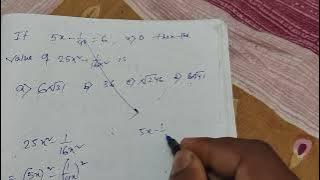 If 5x - 1/4x = 6, x>0 then the
value of 25x² - 1/16x² is
a) 6√31 b) 36 c) √246 d) 6√41
25x² - 1/16x² 5x - 1
= (5x)² - (1/4x)²